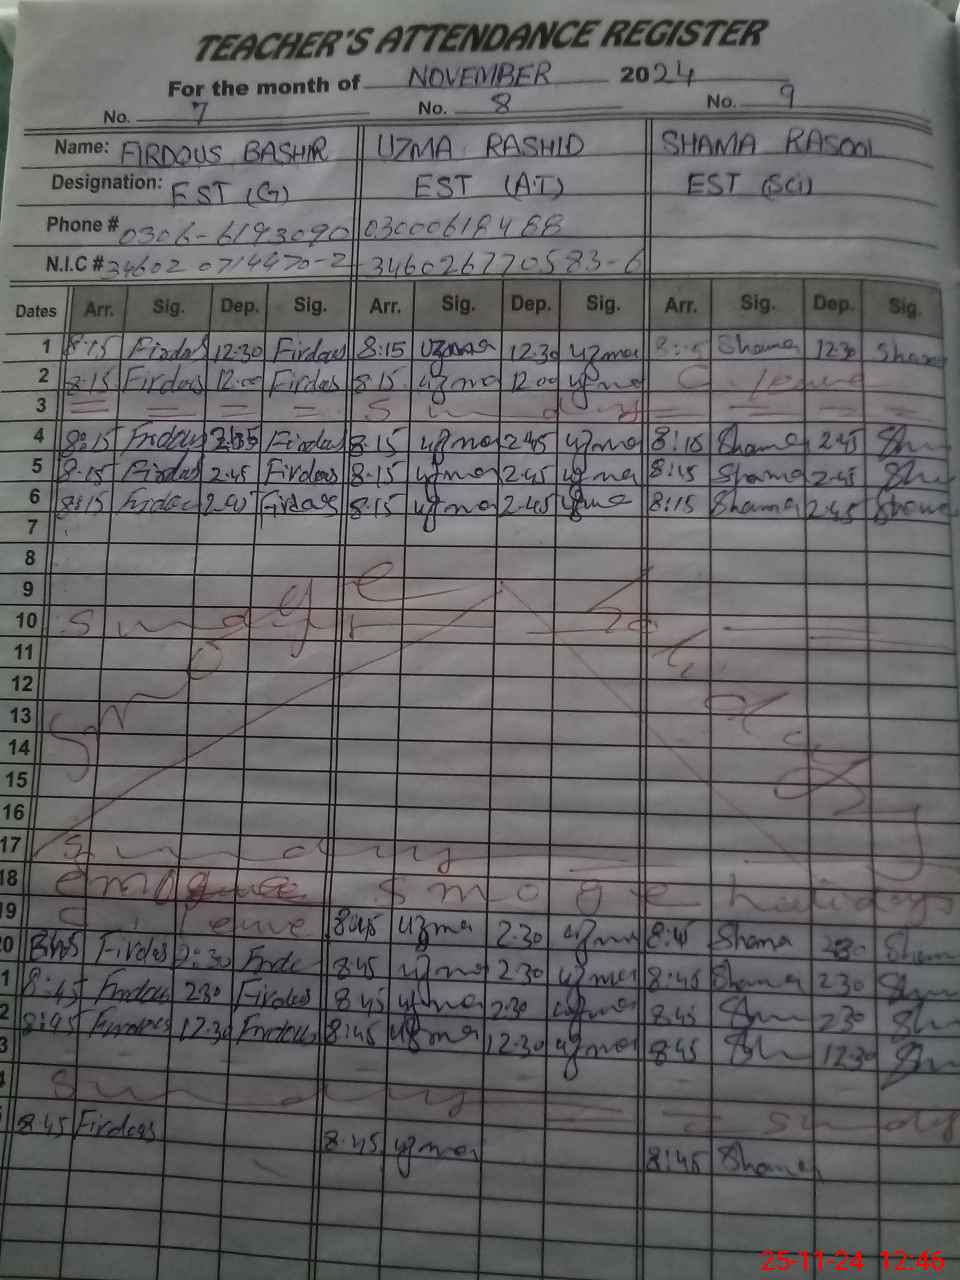 TEACHER'S ATTENDANCE REGISTER
For the month of NOVEMBER 2024
No. 7 No. 8 No. 9
Name: FIRDOUS BASHIR UZMA RASHID SHAMA RASOOL
Designation: EST (G) EST (A.T) EST (Sci)
Phone # 0306-6193090 03000618488
N.I.C # 34602 0714470-2 346026770583-6
Dates Arr. Sig. Dep. Sig. Arr. Sig. Dep. Sig. Arr. Sig. Dep. Sig.
1 8.15 Firdos 12.30 Firdous 8:15 uzma 12.30 uzma Shama 12.30 Shama
2 8:15 Firdous 12.00 Firdous 8.15 uzma 12.00 uzma C. leave
3 Sunday
4 8:15 Firdous Firdous 8.15 uzma 2.45 uzma 8:15 Shama 2.45
5 8.15 Firdous 2.45 Firdous 8.15 uzma 2.45 uzma 8:15 Shama 2.45
6 8:15 Firdous Firdous 8.15 uzma 2.45 uzma 8:15 Shama 2.45 Shama
7
8
9
10 Sunday
11
12
13
14
15
16
Smoge Holidays
17 Sunday
18 Smoge holidays
19 C. leave 8:45 uzma 2.30 uzma 8:45 Shama 2.30 Sham
0 Firdos 2:30 8.45 uzma 2.30 uzma 8:45 Shama 2.30
1 8:45 Firdous 2.30 Firdous 8.45 uzma 2.30 uzma 8.45 2.30
2 8:45 Firdous 12.30 Firdous 8:45 uzma 12.30 uzma 8.45 12.30
3
4 Sunday Sunday
8.45 Firdous 8.45 uzma 8:45 Shama
25-11-24 12:46